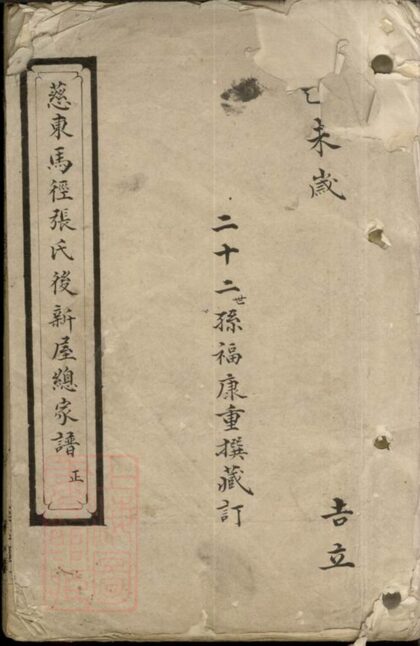 未歲 吉立
二十二世孫福康重撰藏訂
慈東馬徑張氏後新屋總家譜 正